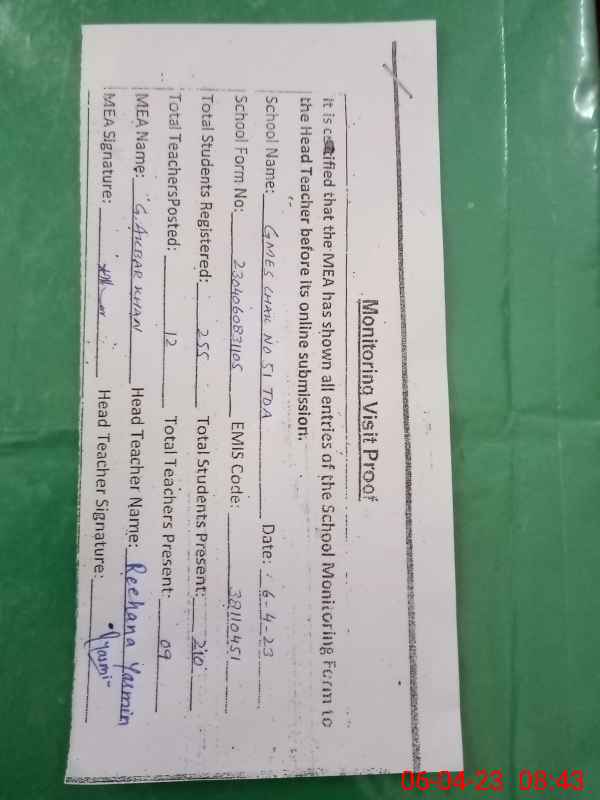 Monitoring Visit Proof
It is certified that the MEA has shown all entries of the School Monitoring Form to
the Head Teacher before its online submission.
School Name: GMES CHAK NO 51 TDA Date: 6-4-23
School Form No: 2304060831105 EMIS Code: 38110451
Total Students Registered: 255 Total Students Present: 210
Total TeachersPosted: 12 Total Teachers Present: 09
MEA Name: G. AKBAR KHAN Head Teacher Name: Reehana Yasmin
MEA Signature: Head Teacher Signature: Yasmi
06-04-23 08:43